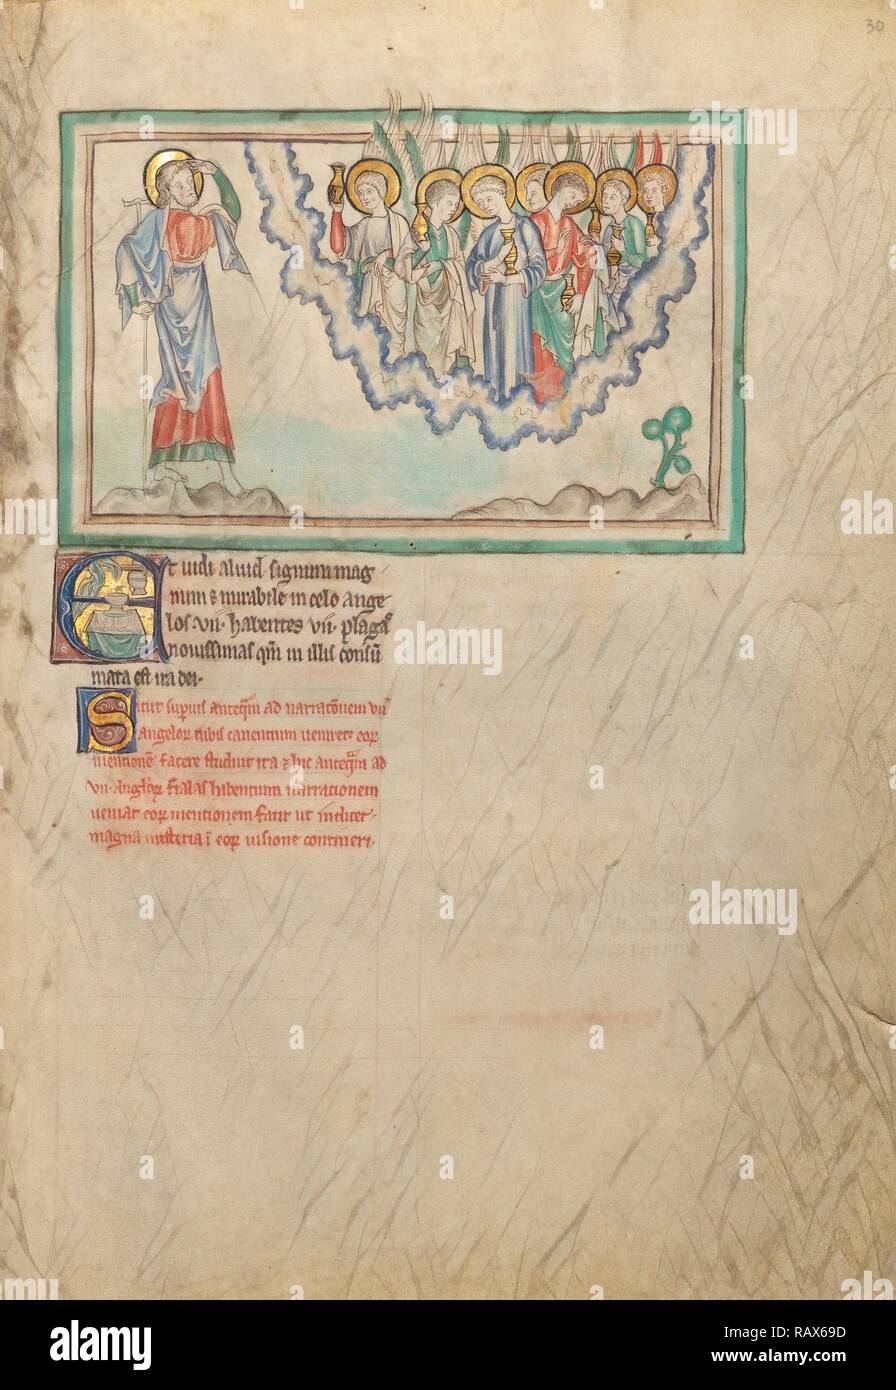 30
Et vidi aliud signum mag
num & mirabile in celo ange
los vii. habentes vii. plagas
novissimas qm in illis consu
mata est ira dei.
Sicut superius anteqm ad narrationem vii
angelor tubis canentium veniret eor
mentione facere studuit ita & hic anteqm ad
vii. anglor fialas habentium narrationem
veniat eor mentionem facit ut indicet
magna misteria i eor visione contineri.
alamy
a
alamy stock photo
RAX69D
www.alamy.com